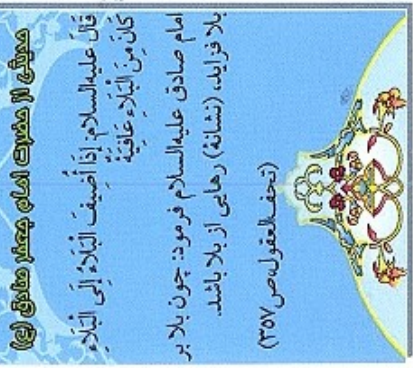 حدیثی از حضرت امام جعفر صادق (ع)
قال علیه‌السلام: إِذَا أُضِيفَ الْبَلَاءُ إِلَى الْبَلَاءِ
كَانَ مِنَ الْبَلَاءِ عَافِيَةٌ
امام صادق علیه‌السلام فرمود: چون بلا بر
بلا فزاید، (نشانهٔ) رهایی از بلا باشد.
(تحف‌العقول،ص۳۵۷)